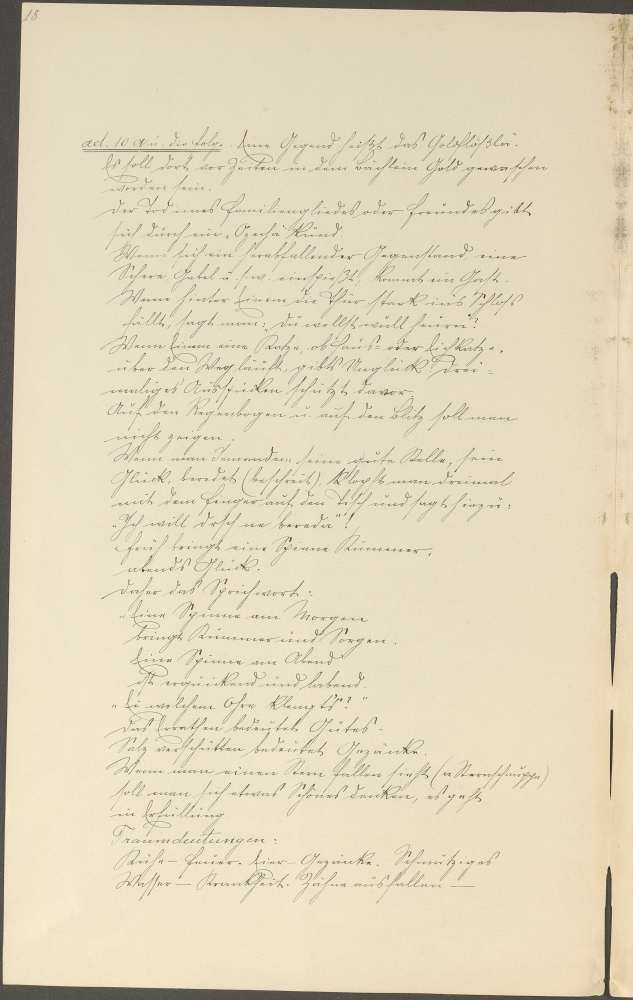 18
ad. 10 A u. die folg. Eine Gegend heißt das
Es soll dort vor Zeiten in dem Bächlein Gold gewaschen
worden sein.
Der Tod eines Familiengliedes oder Freundes gibt
sich durch ein kund.
Wenn sich ein herabfallender Gegenstand, eine
Schere, Gabel u. s. w. einspießt, kommt ein Gast.
Wenn hinter Einem die Thür stark in's Schloß
fällt, sagt man: „Du willst wull heurn?"
Wenn Einem eine Katze, ob Haus- oder Eichkatze,
über den Weg läuft, gibt's Unglück. Drei-
maliges Ausspucken schützt davor.
Auf den Regenbogen u. auf den Blitz soll man
nicht zeigen.
Wenn man Jemanden, seine gute Stelle, sein
Glück, beredet (beschreit), klopft man dreimal
mit dem Finger auf den Tisch und sagt hinzu:
„Ich will dich ne bereda"!
Früh bringt eine Spinne Kummer,
abends Glück.
Daher das Sprichwort:
„Eine Spinne am Morgen
bringt Kummer und Sorgen.
Eine Spinne am Abend
ist erquickend und labend.
„Ei welchem Ohre klengt's?"
Das Errathen bedeutet Gutes.
Salz verschütten bedeutet Gezänke.
Wenn man einen Stern fallen sieht (a Sternschnuppe)
soll man sich etwas Schönes denken, es geht
in Erfüllung.
Traumdeutungen:
Kühe – Feuer. Eier – Gezänke. Schmutziges
Wasser – Krankheit. Zähne ausfallen –